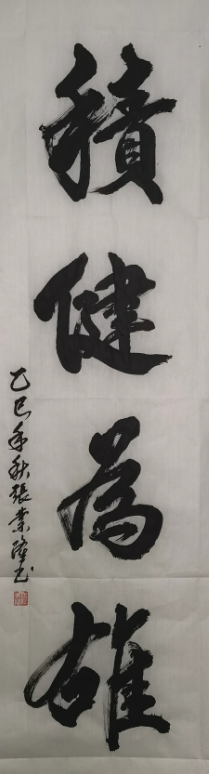 積健為雄
乙巳年秋張業隆書